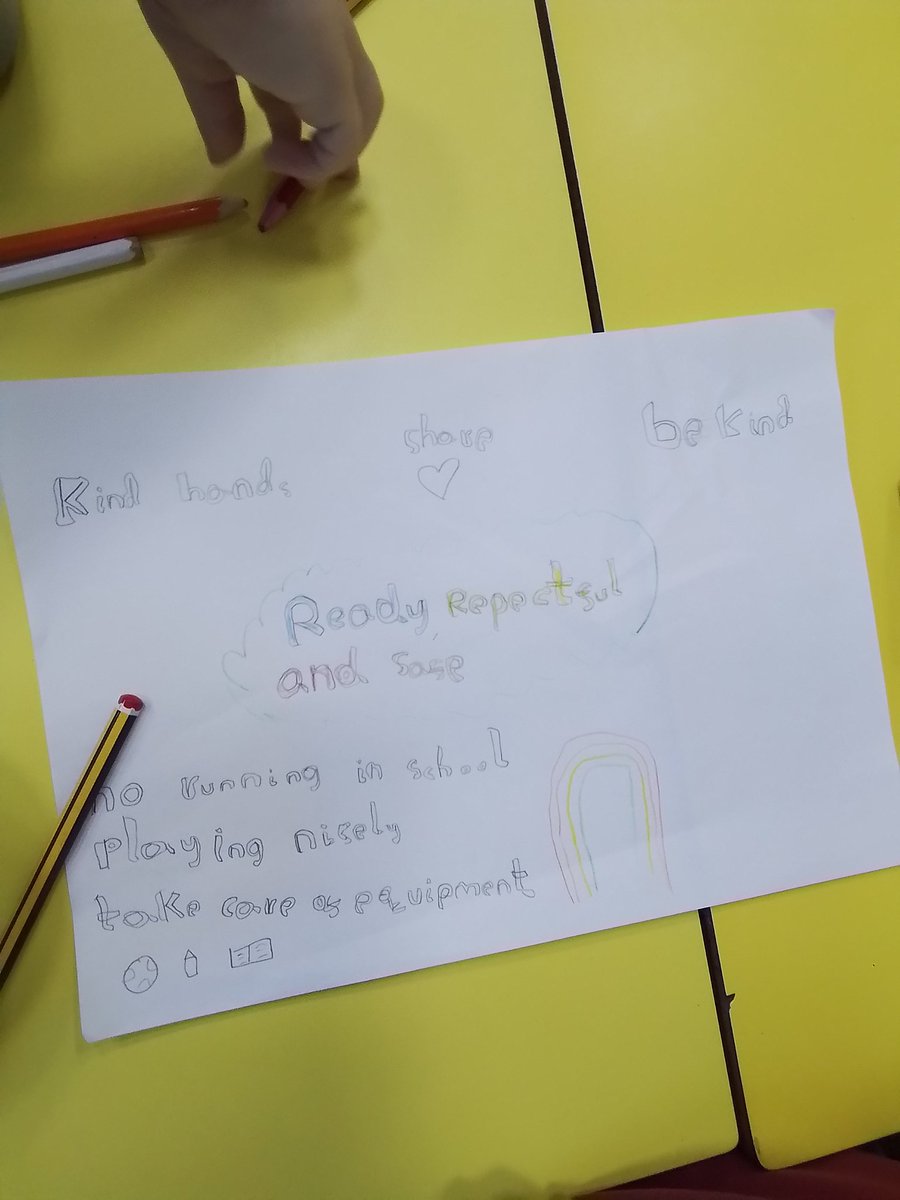 Kind hands
share
be kind
Ready, Repectful
and safe
no running in school
Playing nisely
take care of equipment